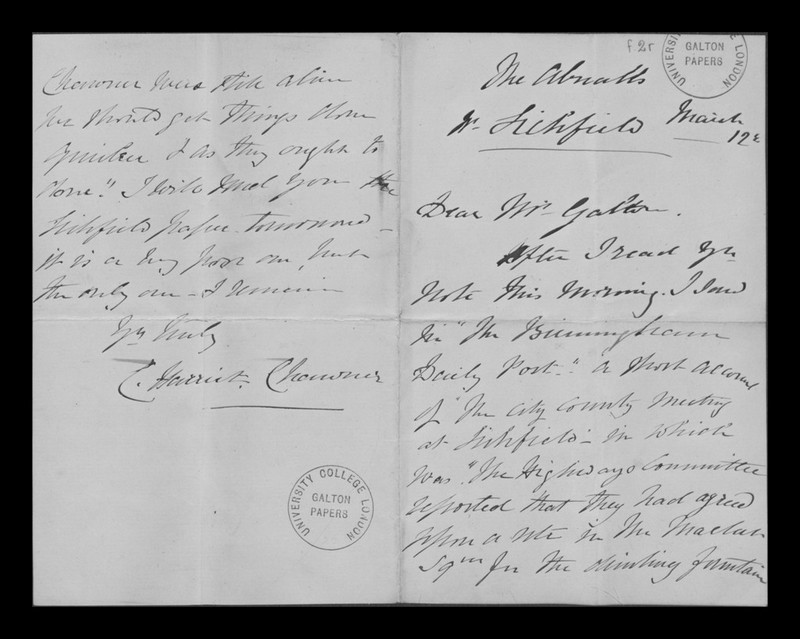 f.2r
UNIVERSITY COLLEGE LONDON
GALTON
PAPERS
The Abnalls
Nr. Lichfield March
12
Dear Mr. Galton.
After I read yr
Note this morning. I found
in "The Birmingham
Daily Post." a short account
of "The City County Meeting
at Lichfield - in which
was "The Highways Committee
reported that they had agreed
upon a site in the Market
Sqre for the drinking fountain
Chawner were still alive
we should get things done
quicker & as they ought to
done". I will send you the
Lichfield paper tomorrow -
it is a very poor one, but
the only one - I remain
Yrs truly
C. Harriet. Chawner
UNIVERSITY COLLEGE LONDON
GALTON
PAPERS